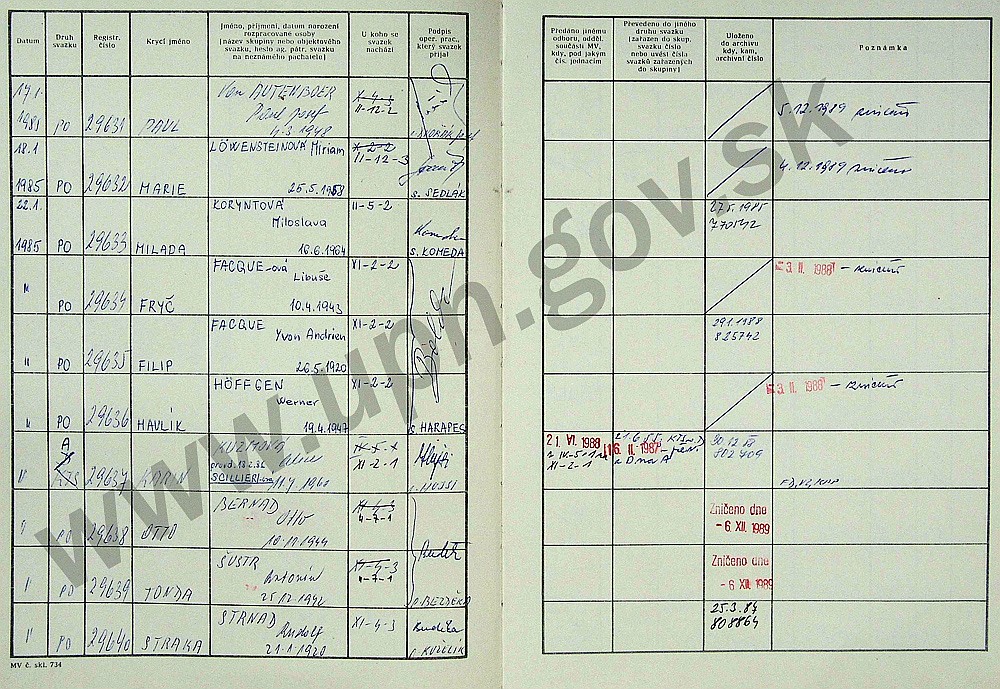 Datum
Druh svazku
Registr. číslo
Krycí jméno
Jméno, příjmení, datum narození
rozpracované osoby
(název skupiny nebo objektového
svazku, heslo ag. pátr. svazku
na neznámého pachatele)
U koho se
svazek
nachází
Podpis
oper. prac.,
který svazek
přijal
Předáno jinému
odboru, odděl.
součásti MV,
kdy, pod jakým
čís. jednacím
Převedeno do jiného
druhu svazku
(zařazen do skup.
svazku číslo
nebo uvést číslo
svazků zařazených
do skupiny)
Uloženo
do archivu
kdy, kam,
archivní číslo
Poznámka
1985 PO 29631 PAUL
Van AUTENBOER
4.3.1948
II-12-2
5.12.1989 zničeno
18.1.
1985 PO 29632 MARIE
LÖWENSTEINOVÁ Miriam
25.5.1958
X-2-2
II-12-3
s. SEDLÁK
4.12.1989 zničeno
22.1.
1985 PO 29633 MILADA
KORYNTOVÁ
Miloslava
16.6.1964
II-5-2
s. KOMEDA
27.5.1985
770542
" PO 29634 FRYČ
FACQUE-ová
Libuše
10.4.1943
XI-2-2
3. II. 1988 - zničeno
" PO 29635 FILIP
FACQUE
Yvon Andrien
26.5.1920
XI-2-2
29.1.1988
825742
" PO 29636 HAVLÍK
HÖFFGEN
Werner
19.4.1947
XI-2-2
s. HARAPES
3. II. 1988 - zničeno
A
" KTS 29637 KARIN
KUZMOVÁ
SCILLIERI-ová
XI-2-1
21. VI. 1988
XI-2-1
16. II. 1987
z D na A
802409
" PO 29638 OTTO
BERNAD
Otto
XI-4-3
4-7-1
Zničeno dne
- 6. XII. 1989
" PO 29639 TONDA
ŠUSTR
Antonín
XI-4-3
4-7-1
s. BEZDĚKA
Zničeno dne
- 6. XII. 1989
" PO 29640 STRAKA
STRNAD
Rudolf
21.1.1920
XI-4-3
25.3.87
808864
MV č. skl. 734
www.upn.gov.sk